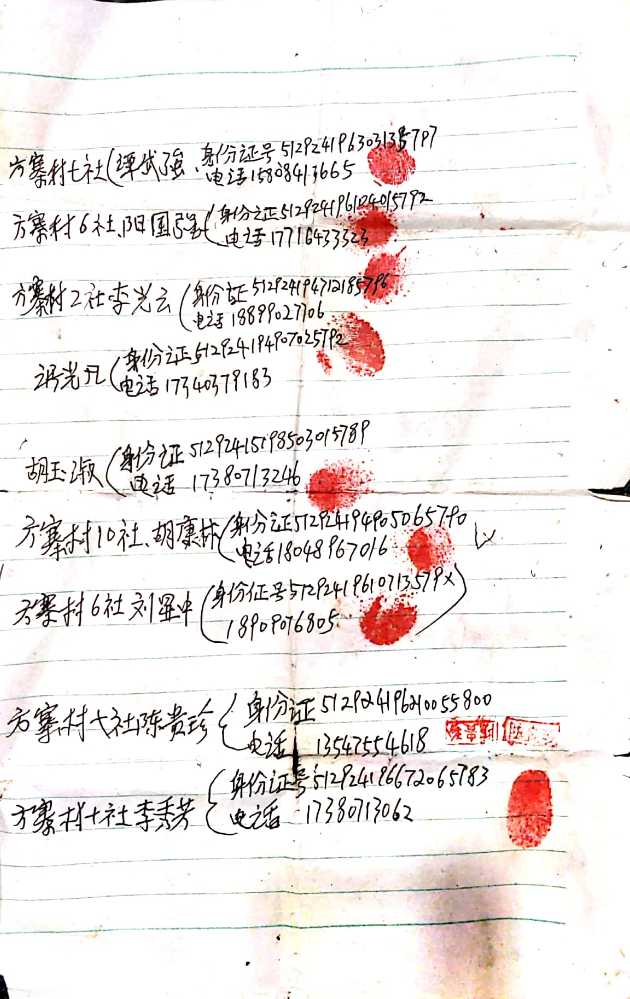 方寨村七社(谭武强、身份证号512924196303135797
电话15808413665
方寨村6社、阳国强(身份证512924196104015792
电话17716433323
方寨村2社李光云(身份证512924194712185796
电话18899027706
冯光凡(身份证512924194907025792
电话17340379183
胡玉淑(身份证512924151985030 15789
电话 17380713246
方寨村10社、胡康林(身份证512924194905065790
电话18048967016
方寨村6社刘显中(身份证号51292419610713579X)
18909076805
方寨村七社陈贵珍{身份证512924196210055800
电话 13547554618
方寨村十社李秀芳{身份证号512924196672065783
电话 17380713062